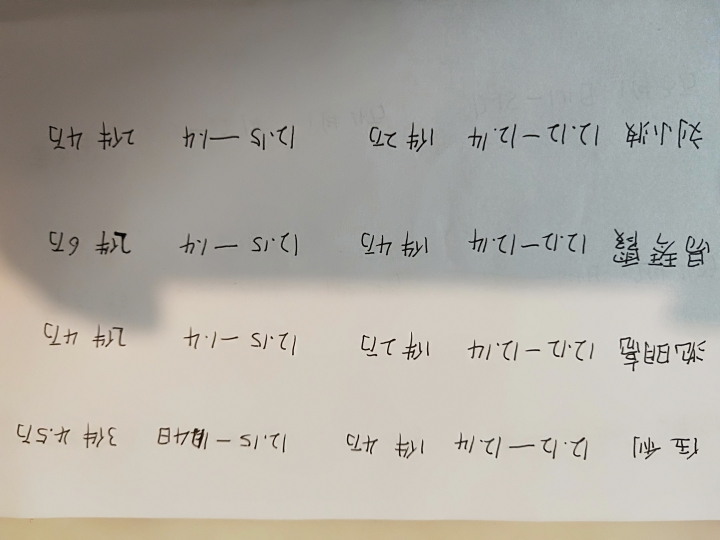 伍利 12.12—12.14 1件 4万 12.15—1月4日 3件 4.5万
12.12—12.14 1件 2万 12.15—1.4 2件 4万
12.12—12.14 1件 4万 12.15—1.4 2件 6万
刘小波 12.12—12.14 1件 2万 12.15—1.4 2件 4万